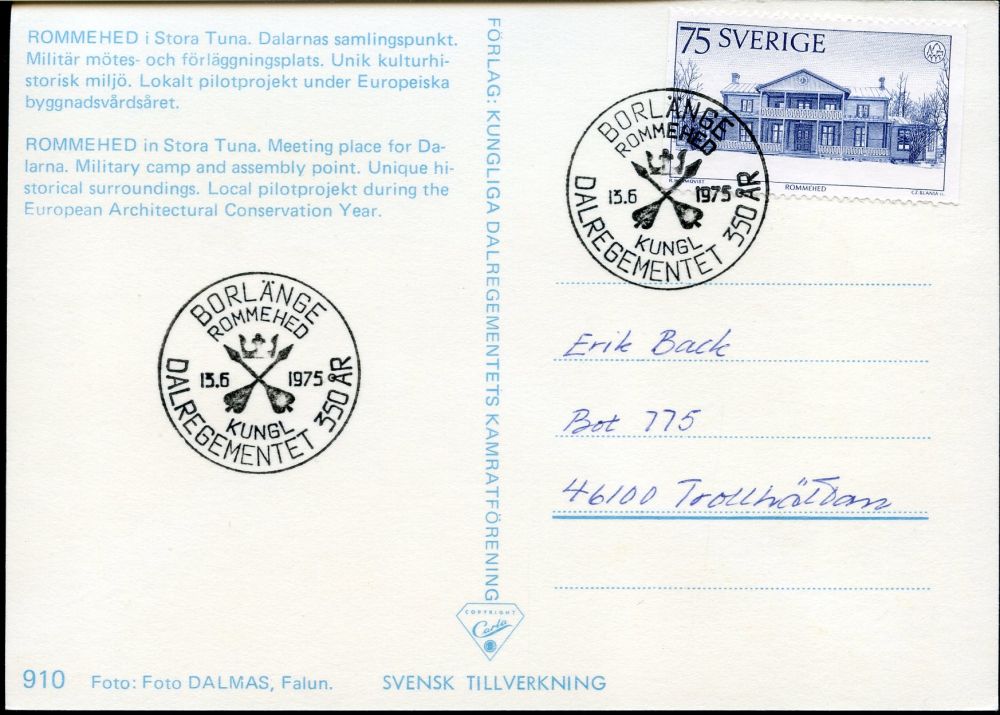 ROMMEHED i Stora Tuna. Dalarnas samlingspunkt.
Militär mötes- och förläggningsplats. Unik kulturhi-
storisk miljö. Lokalt pilotprojekt under Europeiska
byggnadsvårdsåret.
ROMMEHED in Stora Tuna. Meeting place for Da-
larna. Military camp and assembly point. Unique hi-
storical surroundings. Local pilotprojekt during the
European Architectural Conservation Year.
BORLÄNGE
ROMMEHED
13.6 1975
KUNGL
DALREGEMENTET 350 ÅR
FÖRLAG: KUNGLIGA DALREGEMENTETS KAMRATFÖRENING
COPYRIGHT
Carla
75 SVERIGE
ROMMEHED
BORLÄNGE
ROMMEHED
13.6 1975
KUNGL
DALREGEMENTET 350 ÅR
Erik Back
Box 775
46100 Trollhättan
910 Foto: Foto DALMAS, Falun. SVENSK TILLVERKNING